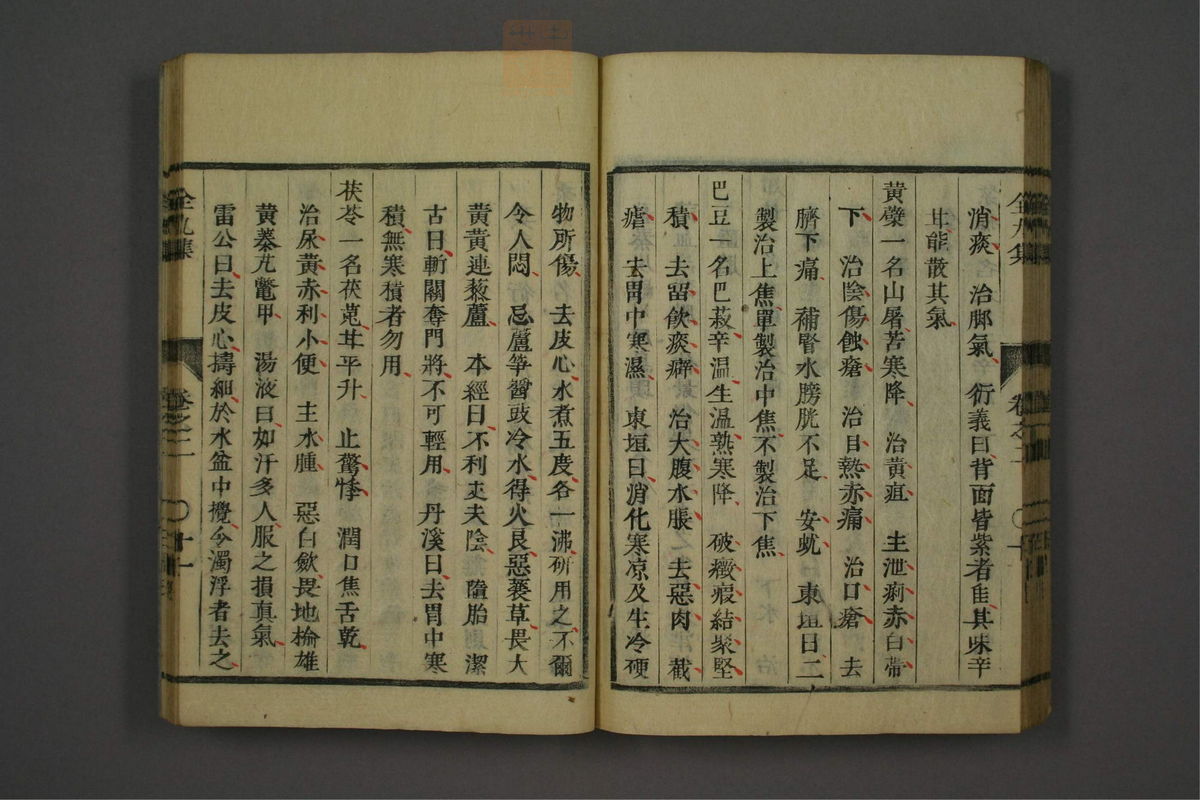 消痰 治脚氣 衍義曰背面皆紫者佳其味辛
甘能散其氣
黃蘗一名山屠苦寒降 治黃疸 主泄痢赤白帶
下 治陰傷蝕瘡 治目熱赤痛 治口瘡 去
臍下痛 補腎水膀胱不足 安蚘 東垣曰二
製治上焦單製治中焦不製治下焦
巴豆一名巴菽辛溫生溫熟寒降 破癥瘕結聚堅
積 去留飲痰癖 治大腹水脹 去惡肉 截
瘧 去胃中寒濕 東垣曰消化寒凉及生冷硬
全九集 卷之二 〇十
物所傷 去皮心水煮五度各一沸研用之不爾
令人悶 忌蘆筍醬豉冷水得火良惡蘘草畏大
黃黃連藜蘆 本經曰不利丈夫陰 墮胎 潔
古曰斬關奪門將不可輕用 丹溪曰去胃中寒
積無寒積者勿用
茯苓一名茯菟甘平升 止驚悸 潤口焦舌乾
治尿黃赤利小便 主水腫 惡白歛畏地楡雄
黃蓁艽鼈甲 湯液曰如汗多人服之損真氣
雷公曰去皮心擣細於水盆中攪令濁浮者去之
全九集 卷之二 〇十一